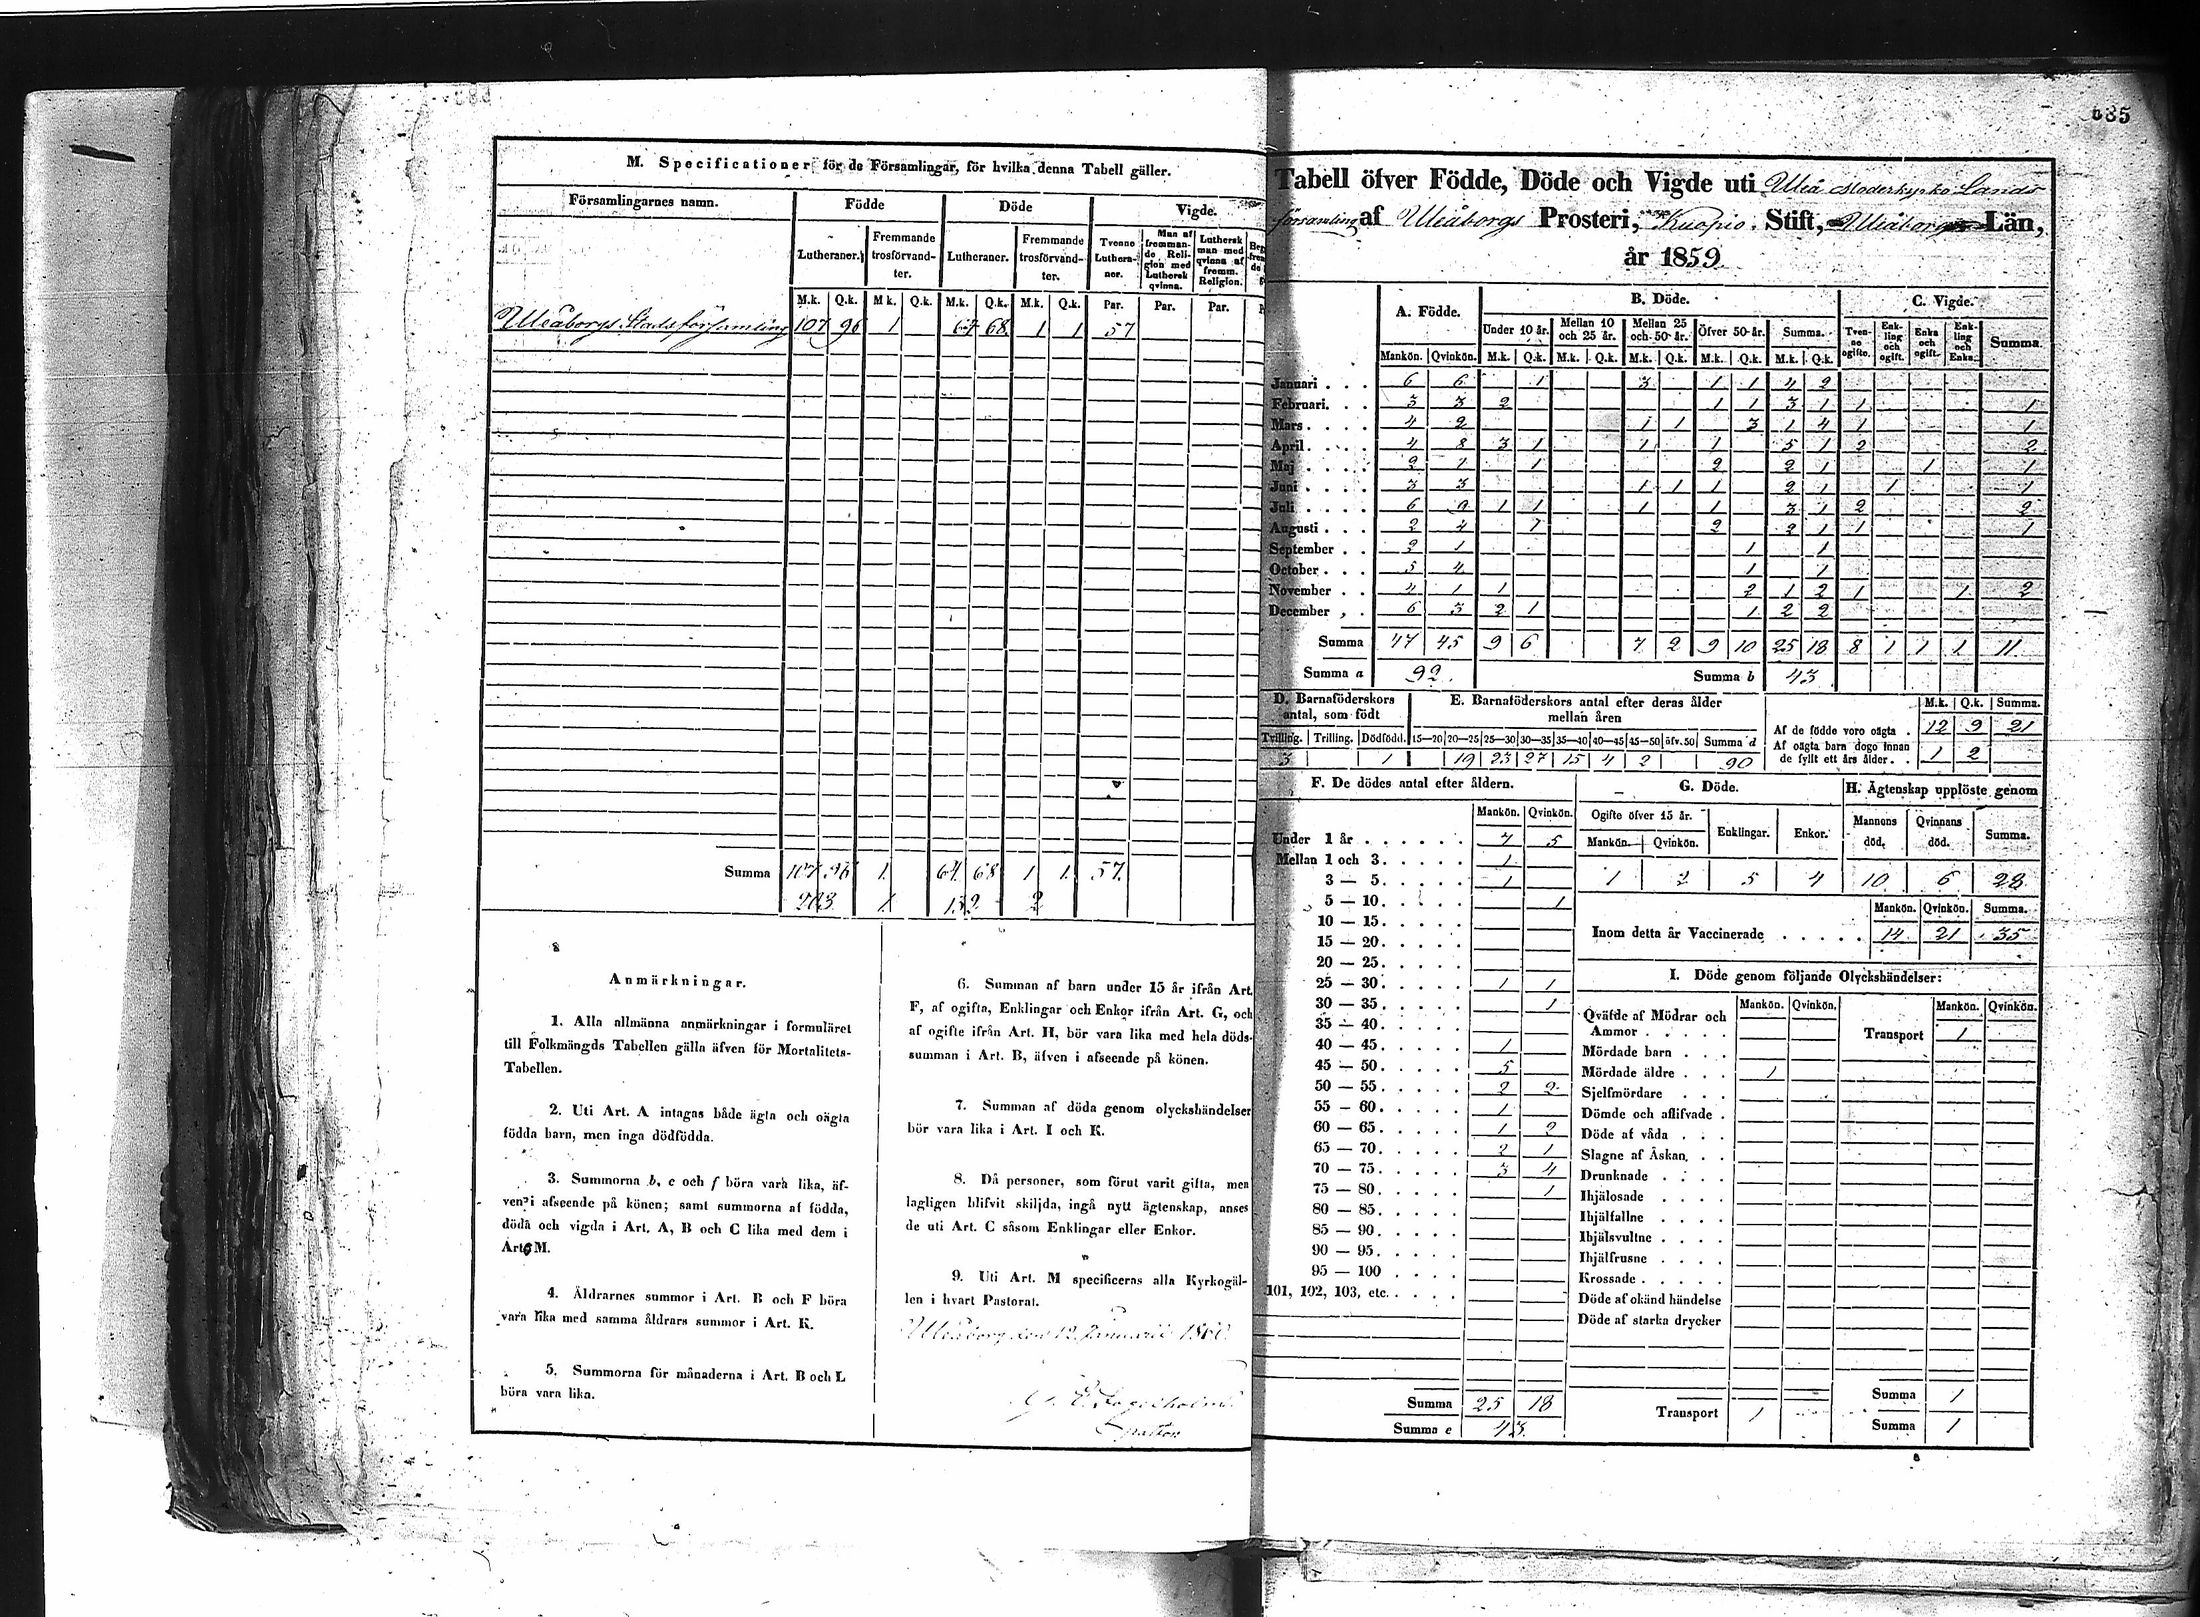 M. Specificationer för de Församlingar, för hvilka denna Tabell gäller.
Församlingarnes namn. Födde Döde Vigde.
Lutheraner. Fremmande trosförvandter. Lutheraner. Fremmande trosförvandter. Tvenne Lutheraner. Man af fremmande Religion med Luthersk qvinna. Luthersk man med qvinna af fremm. Religion.
M.k. Q.k. M k. Q.k. M.k. Q.k. M.k. Q.k. Par. Par. Par.
Uleåborgs Stadsförsamling 107 96 1 64 68 1 1 57
Summa 107 96 1 64 68 1 1 57
203 1 132 2
Anmärkningar.
1. Alla allmänna anmärkningar i formuläret
till Folkmängds Tabellen gälla äfven för Mortalitets-
Tabellen.
2. Uti Art. A intagas både ägta och oägta
födda barn, men inga dödfödda.
3. Summorna b, c och f böra vara lika, äf-
ven i afseende på könen; samt summorna af födda,
döda och vigda i Art. A, B och C lika med dem i
Art. M.
4. Åldrarnes summor i Art. B och F böra
vara lika med samma åldrars summor i Art. K.
5. Summorna för månaderna i Art. B och L
böra vara lika.
6. Summan af barn under 15 år ifrån Art.
F, af ogifta, Enklingar och Enkor ifrån Art. G, och
af ogifte ifrån Art. H, bör vara lika med hela döds-
summan i Art. B, äfven i afseende på könen.
7. Summan af döda genom olyckshändelser
bör vara lika i Art. I och K.
8. Då personer, som förut varit gifta, men
lagligen blifvit skiljda, ingå nytt ägtenskap, anses
de uti Art. C såsom Enklingar eller Enkor.
9. Uti Art. M specificeras alla Kyrkogäl-
len i hvart Pastorat.
Uleåborg den 12 Januarii 1860.
Pastor
Tabell öfver Födde, Döde och Vigde uti Uleå Moderkyrko Lands
församling af Uleåborgs Prosteri, Kuopio Stift, Uleåborgs Län,
år 1859
A. Födde. B. Döde. C. Vigde.
Under 10 år. Mellan 10 och 25 år. Mellan 25 och 50 år. Öfver 50 år. Summa. Tvenne ogifte. Enkling och ogift. Enka och ogift. Enkling och Enka. Summa.
Mankön. Qvinkön. M.k. Q.k. M.k. Q.k. M.k. Q.k. M.k. Q.k. M.k. Q.k.
Januari . . . 6 6 1 3 1 1 4 2
Februari. . . 3 3 2 1 1 3 1 1 1
Mars . . . . 4 2 1 1 3 1 4 1 1
April. . . . 4 8 3 1 1 1 5 1 2 2
Maj . . . . 2 1 1 2 2 1 1 1
Juni . . . . 3 3 1 1 1 2 1 1 1
Juli . . . . 6 9 1 1 1 1 3 1 2 2
Augusti . . . 2 4 1 2 2 1 1 1
September . . 2 1 1 1
October . . . 5 4 1 1
November . . 4 1 1 2 1 2 1 1 2
December . 6 3 2 1 1 2 2
Summa 47 45 9 6 7 2 9 10 25 18 8 1 1 1 11
Summa a 92. Summa b 43
D. Barnaföderskors antal, som födt
E. Barnaföderskors antal efter deras ålder mellan åren
Tvilling. Trilling. Dödfödd. 15—20 20—25 25—30 30—35 35—40 40—45 45—50 öfv. 50 Summa d
3 1 19 23 27 15 4 2 90
M.k. Q.k. Summa.
Af de födde voro oägta . 12 9 21
Af oägta barn dogo innan
de fyllt ett års ålder. . 1 2
F. De dödes antal efter åldern.
Mankön. Qvinkön.
Under 1 år . . . . . . 7 5
Mellan 1 och 3. . . . . 1
3 — 5. . . . . 1
5 — 10. . . . . 1
10 — 15. . . . .
15 — 20. . . . .
20 — 25. . . . .
25 — 30. . . . . 1 1
30 — 35. . . . . 1
35 — 40. . . . .
40 — 45. . . . . 1
45 — 50. . . . . 5
50 — 55. . . . . 2 2
55 — 60. . . . . 1
60 — 65. . . . . 1 2
65 — 70. . . . . 2 1
70 — 75. . . . . 3 4
75 — 80. . . . . 1
80 — 85. . . . .
85 — 90. . . . .
90 — 95. . . . .
95 — 100 . . . .
101, 102, 103, etc. . . . .
Summa 25 18
Summa e 43.
G. Döde.
Ogifte öfver 15 år. Enklingar. Enkor.
Mankön. Qvinkön.
1 2 5 4
H. Ägtenskap upplöste genom
Mannens död. Qvinnans död. Summa.
10 6 28
Mankön. Qvinkön. Summa.
Inom detta år Vaccinerade . . . . . 14 21 35
I. Döde genom följande Olyckshändelser:
Mankön. Qvinkön. Mankön. Qvinkön.
Qväfde af Mödrar och
Ammor . . . .
Transport 1
Mördade barn . . .
Mördade äldre . . . 1
Sjelfmördare . . .
Dömde och aflifvade .
Döde af våda . . .
Slagne af Åskan. . .
Drunknade . . . .
Ihjälosade . . . .
Ihjälfallne . . . .
Ihjälsvultne . . . .
Ihjälfrusne . . . .
Krossade . . . . .
Döde af okänd händelse
Döde af starka drycker
Summa 1
Transport 1 Summa 1